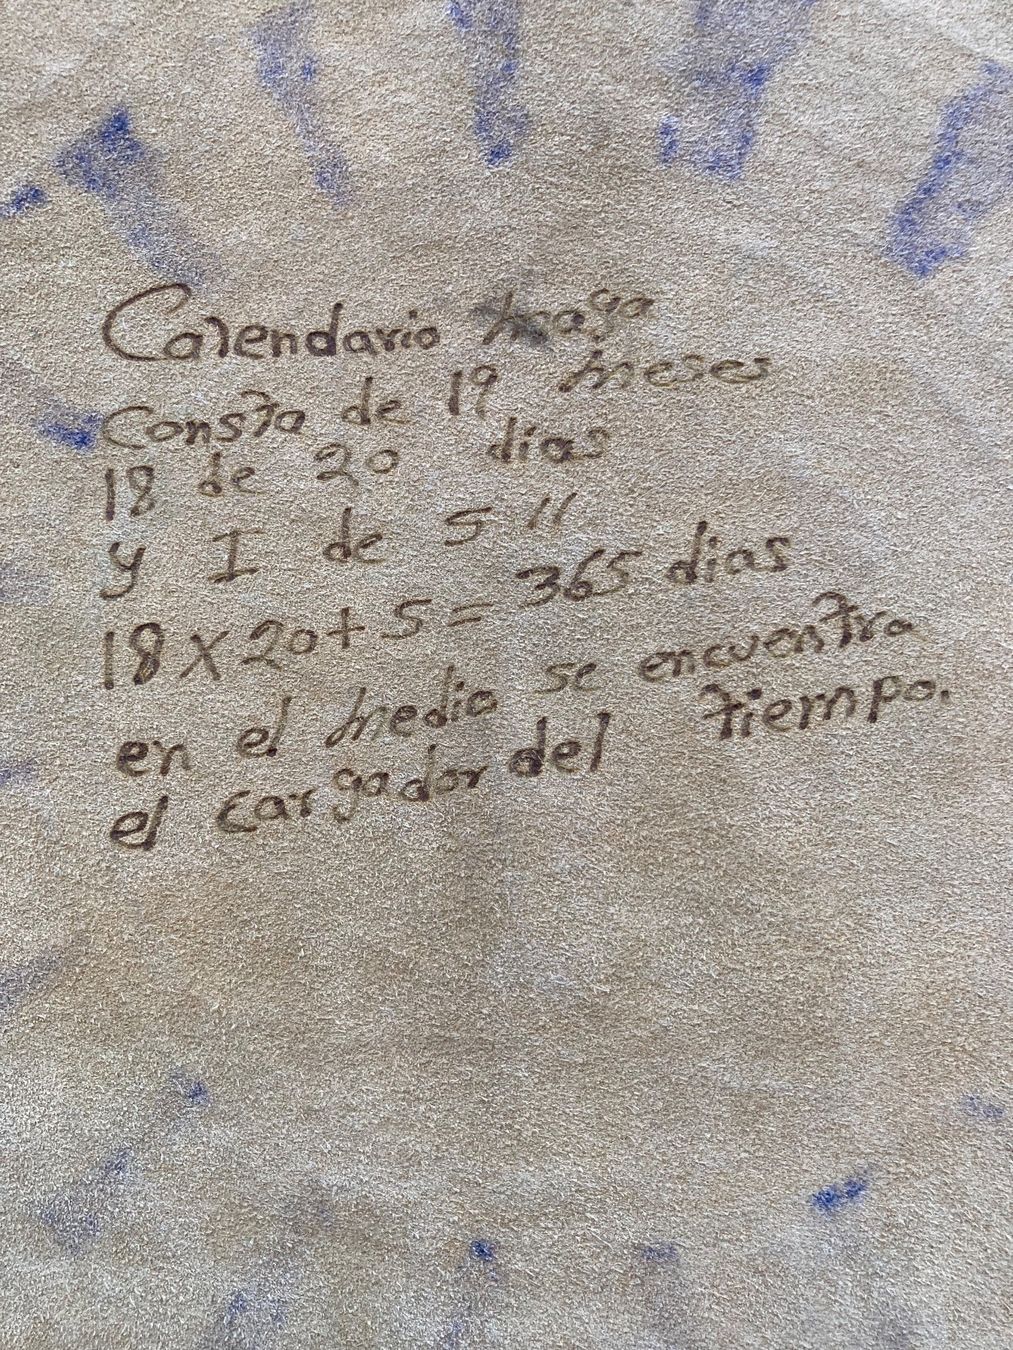 Calendario maya
Consta de 19 meses
18 de 20 dias
y I de 5 "
18 x 20 + 5 = 365 dias
en el medio se encuentra
el cargador del tiempo.